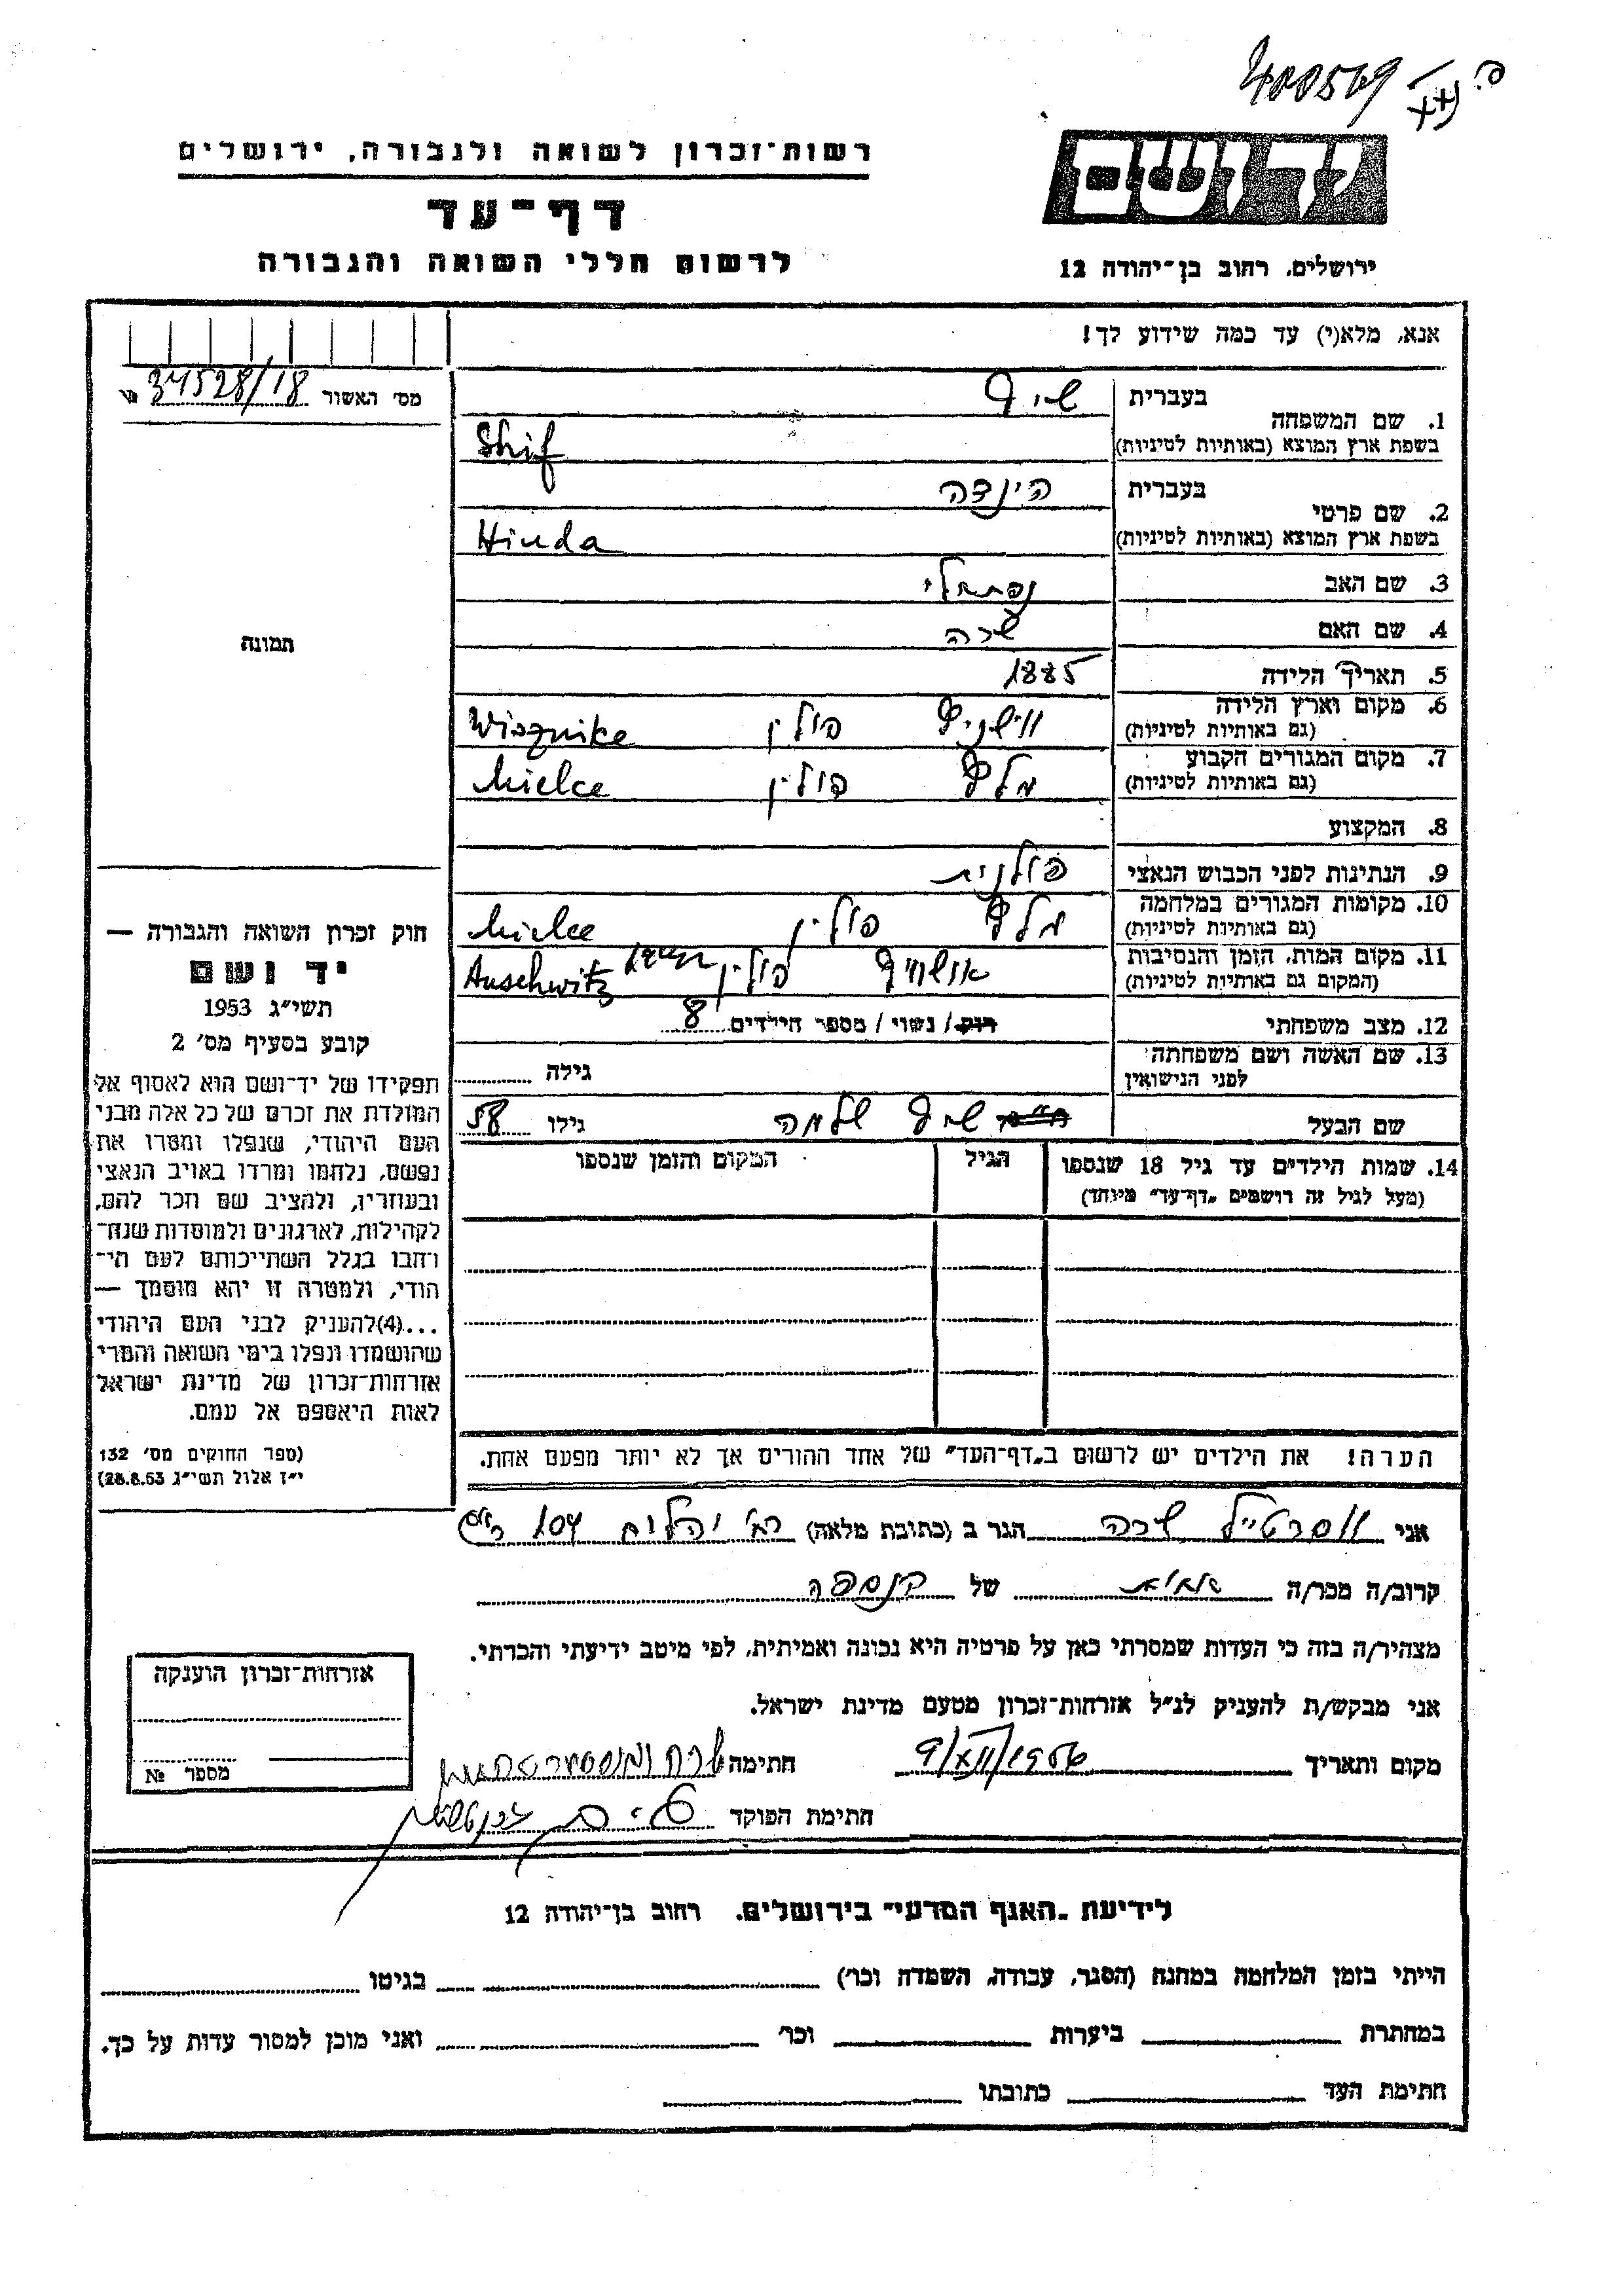 400569
רשות־זכרון לשואה ולגבורה, ירושלים
דף־עד
לרשום חללי השואה והגבורה
יד ושם
ירושלים, רחוב בן־יהודה 12
אנא, מלא(י) עד כמה שידוע לך!
מס׳ האשור 34528/18 №
תמונה
1. שם המשפחה
בעברית שיף
בשפת ארץ המוצא (באותיות לטיניות) Shif
2. שם פרטי
בעברית הינדה
בשפת ארץ המוצא (באותיות לטיניות) Hinda
3. שם האב נפתלי
4. שם האם שרה
5. תאריך הלידה 1885
6. מקום וארץ הלידה פולין
(גם באותיות לטיניות)
7. מקום המגורים הקבוע פולין Mielce
(גם באותיות לטיניות)
8. המקצוע
9. הנתינות לפני הכבוש הנאצי פולנית
10. מקומות המגורים במלחמה פולין Mielce
(גם באותיות לטיניות)
11. מקום המות, הזמן והנסיבות אושוויץ פולין Auschwitz
(המקום גם באותיות לטיניות)
12. מצב משפחתי רוק / נשוי / מספר הילדים 8
13. שם האשה ושם משפחתה לפני הנישואין גילה
שם הבעל שיף שלמה גילו 58
14. שמות הילדים עד גיל 18 שנספו
(מעל לגיל זה רושמים „דף־עד" מיוחד)
הגיל
המקום והזמן שנספו
הערה! את הילדים יש לרשום ב„דף־העד" של אחד ההורים אך לא יותר מפעם אחת.
חוק זכרון השואה והגבורה —
יד ושם
תשי״ג 1953
קובע בסעיף מס׳ 2
תפקידו של יד־ושם הוא לאסוף אל
המולדת את זכרם של כל אלה מבני
העם היהודי, שנפלו ומסרו את
נפשם, נלחמו ומרדו באויב הנאצי
ובעוזריו, ולהציב שם וזכר להם,
לקהילות, לארגונים ולמוסדות שנח־
רבו בגלל השתייכותם לעם הי־
הודי, ולמטרה זו יהא מוסמך —
...(4)להעניק לבני העם היהודי
שהושמדו ונפלו בימי השואה והמרי
אזרחות־זכרון של מדינת ישראל
לאות היאספם אל עמם.
(ספר החוקים מס׳ 132
י״ז אלול תשי״ג 28.8.53)
אני שרה הגר ב (כתובת מלאה) 104
קרוב/ה מכר/ה של הנספה
מצהיר/ה בזה כי העדות שמסרתי כאן על פרטיה היא נכונה ואמיתית, לפי מיטב ידיעתי והכרתי.
אני מבקש/ת להעניק לנ״ל אזרחות־זכרון מטעם מדינת ישראל.
מקום ותאריך 9/XII/1956 חתימה
חתימת הפוקד
אזרחות־זכרון הוענקה
מספר №
לידיעת „האגף המדעי" בירושלים, רחוב בן־יהודה 12
הייתי בזמן המלחמה במחנה (הסגר, עבודה, השמדה וכו׳) בגיטו
במחתרת ביערות וכו׳ ואני מוכן למסור עדות על כך.
חתימת העד כתובתו